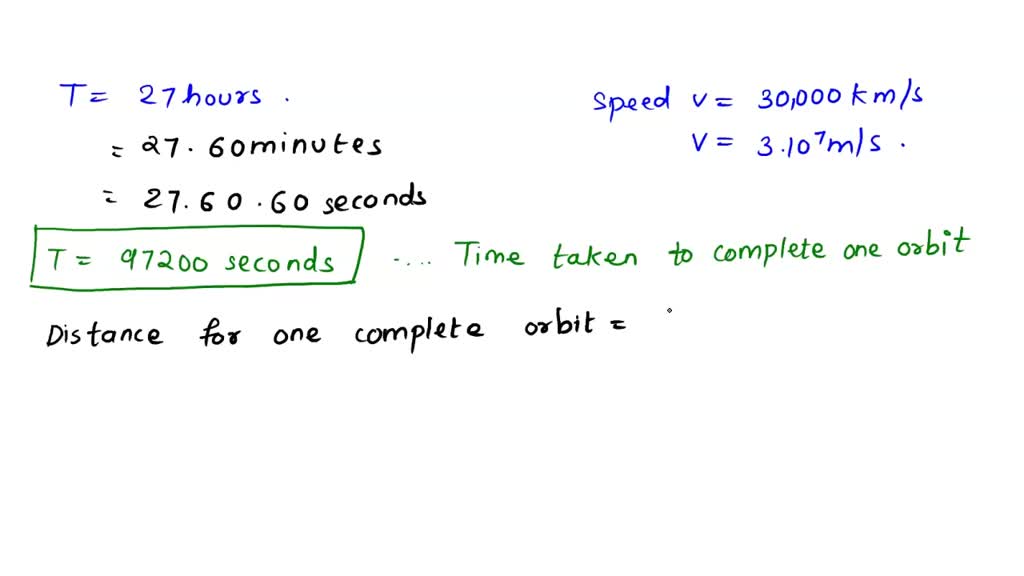 T = 27 hours .
= 27. 60 minutes
= 27.60.60 seconds
T = 97200 seconds .... Time taken to complete one orbit
Speed v = 30,000 km/s
v = 3.10⁷ m/s .
Distance for one complete orbit =